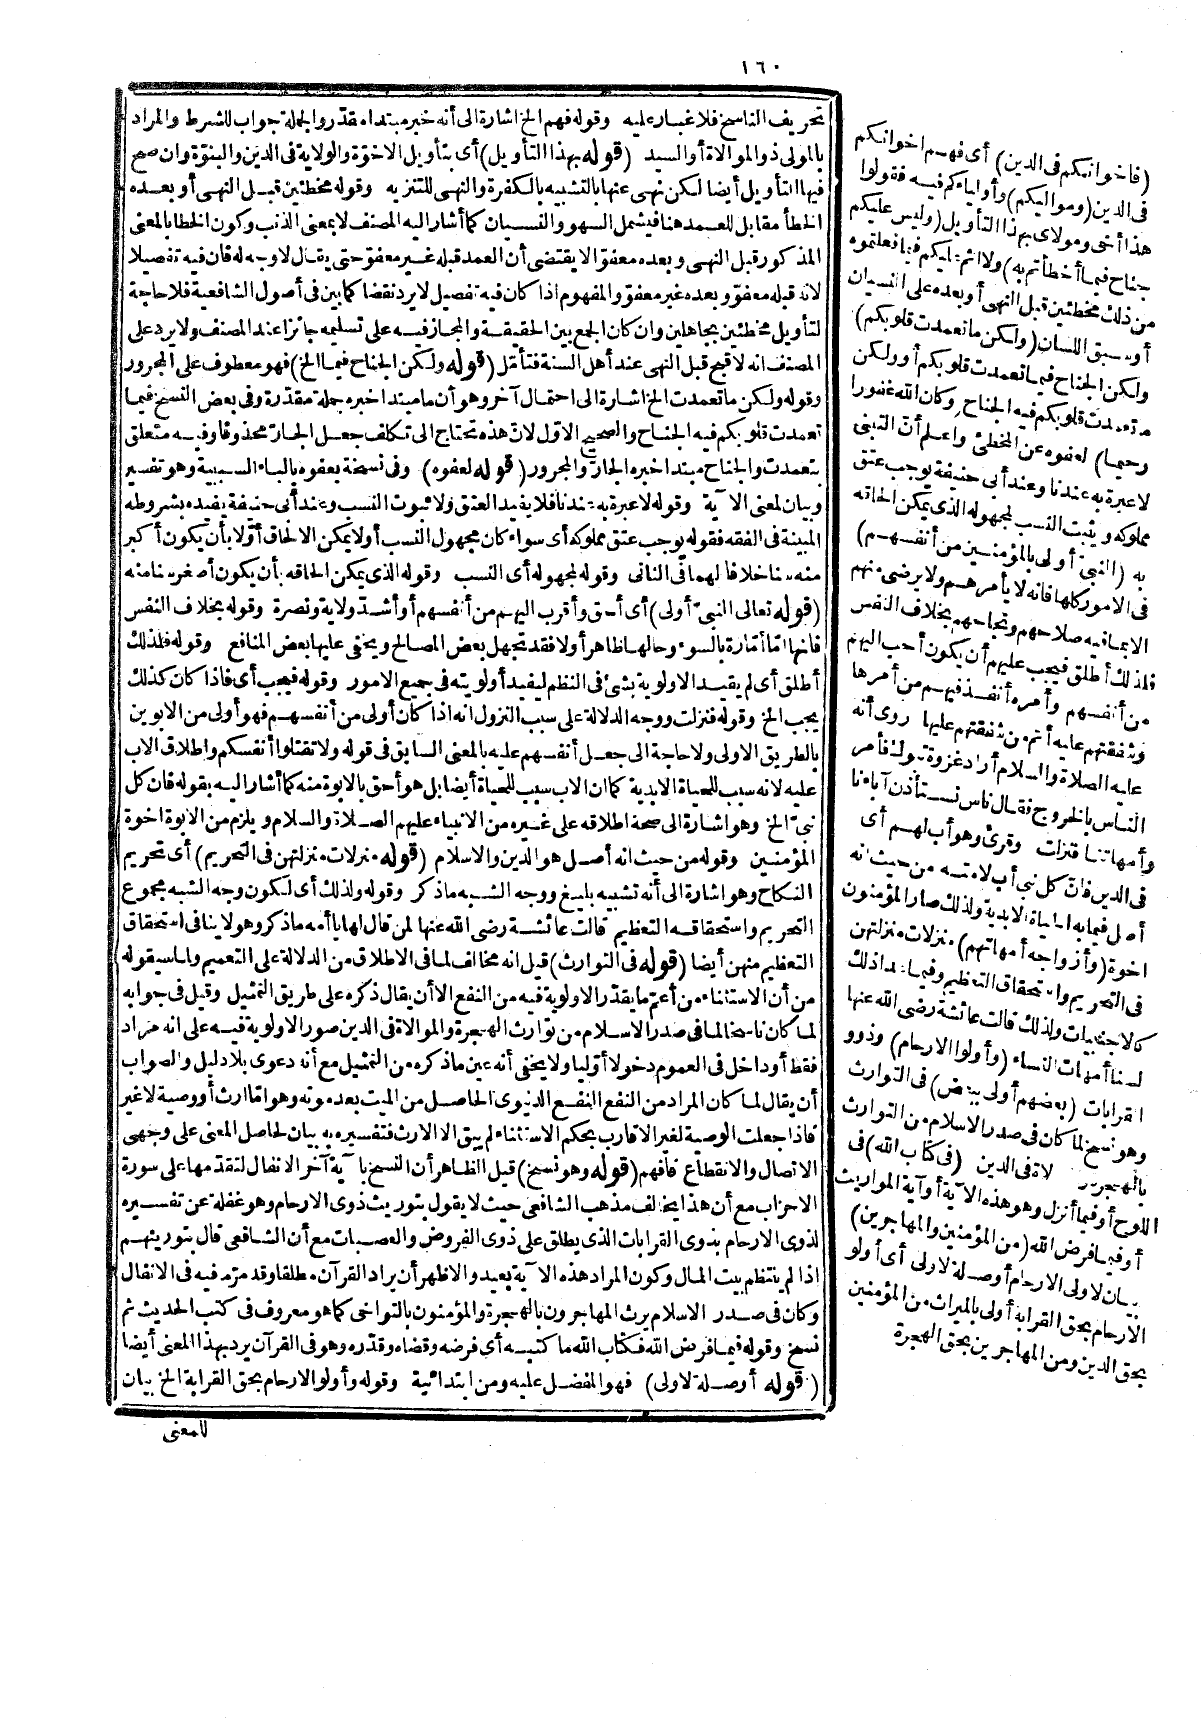 ١٦٠
تحريف الناسخ فلا غبار عليه وقوله فهم الخ اشارة الى أنه خبر مبتدا مقدّر والجملة جواب للشرط والمراد
بالمولى ذو الموالاة أو السيد (قوله بهذا التأويل) أى بتأويل الاخوّة والولاية فى الدين والبنوّة وان صح
فيها التأويل أيضا لكن نهى عنها بالتشبيه بالكفرة والنهى للتنزيه وقوله مخطئين قبل النهى أو بعده
الخطأ مقابل للعمد هنا فيشمل السهو والنسيان كما أشار اليه المصنف لا بمعنى الذنب وكون الخطا بالمعنى
المذكور قبل النهى وبعده معفوّا لا يقتضى أن العمد قبله غير معفوّ حتى يقال لا وجه له فان فيه تفصيلا
لانه قبله معفوّ وبعده غير معفوّ والمفهوم اذا كان فيه تفصيل لا يرد نقضا كما بين فى أصول الشافعية فلا حاجة
لتأويل مخطئين بجاهلين وان كان الجمع بين الحقيقة والمجاز فيه على تسليمه جائزا عند المصنف ولا يرد على
المصنف انه لا قبح قبل النهى عند أهل السنة فتأمّل (قوله ولكن الجناح فيما الخ) فهو معطوف على المجرور
وقوله ولكن ما تعمدت الخ اشارة الى احتمال آخر وهو أن ما مبتدا خبره جملة مقدّرة وفى بعض النسخ فيما
تعمدت قلوبكم فيه الجناح والصحيح الاول لانّ هذه تحتاج الى تكلف جعل الجارّ محذوفا وفيه متعلق
بتعمدت والجناح مبتدا خبره الجارّ والمجرور (قوله لعفوه) وفى نسخة بعفوه بالباء السببية وهو تفسير
وبيان لمعنى الآية وقوله لا عبرة به عندنا فلا يفيد العتق ولا ثبوت النسب وعند أبى حنيفة يفيده بشروطه
المبينة فى الفقه فقوله يوجب عتق مملوكه أى سواء كان مجهول النسب أو لا يمكن الالحاق أو لا بأن يكون أكبر
منه سنا خلافا لهما فى الثانى وقوله لمجهوله أى النسب وقوله الذى يمكن الحاقه بأن يكون أصغر سنا منه
(قوله تعالى النبىّ أولى) أى أحق وأقرب اليهم من أنفسهم أو أشدّ ولاية ونصرة وقوله بخلاف النفس
فانها امّا أمّارة بالسوء وحالها ظاهر أو لا فقد تجهل بعض المصالح ويخفى عليها بعض المنافع وقوله فلذلك
أطلق أى لم يقيد الاولوية بشئ فى النظم ليفيد أولويته فى جميع الامور وقوله فيجب أى فاذا كان كذلك
يجب الخ وقوله فنزلت ووجه الدلالة على سبب النزول انه اذا كان أولى من أنفسهم فهو أولى من الابوين
بالطريق الاولى ولا حاجة الى جعل أنفسهم عليه بالمعنى السابق فى قوله ولا تقتلوا أنفسكم واطلاق الاب
عليه لانه سبب للحياة الابدية كما ان الاب سبب للحياة أيضا بل هو أحق بالابوة منه كما أشار اليه بقوله فان كل
نبىّ الخ وهو اشارة الى صحة اطلاقه على غيره من الانبياء عليهم الصلاة والسلام ويلزم من الابوة اخوة
المؤمنين وقوله من حيث انه أصل هو الدين والاسلام (قوله منزلات منزلتهن فى التحريم) أى تحريم
النكاح وهو اشارة الى أنه تشبيه بليغ ووجه الشبه ما ذكر وقوله ولذلك أى لكون وجه الشبه مجموع
التحريم واستحقاقه التعظيم قالت عائشة رضى الله عنها لمن قال لها يا أمه ما ذكر وهو لا ينافى استحقاق
التعظيم منهن أيضا (قوله فى التوارث) قيل انه مخالف لما فى الاطلاق من الدلالة على التعميم ولما سيقوله
من أن الاستثناء من أعمّ ما يقدّر الاولوية فيه من النفع الا أن يقال ذكره على طريق التمثيل وقيل فى جوابه
لما كان ناسخا لما فى صدر الاسلام من توارث الهجرة والموالاة فى الدين صوّر الاولوية فيه على انه مراد
فقط أو داخل فى العموم دخولا أوّليا ولا يخفى أنه عين ما ذكره من التمثيل مع أنه دعوى بلا دليل والصواب
أن يقال لما كان المراد من النفع النفع الدنيوى الحاصل من الميت بعد موته وهو امّا ارث أو وصية لا غير
فاذا جعلت الوصية لغير الاقارب بحكم الاستثناء لم يبق الا الارث فتفسيره به بيان لحاصل المعنى على وجهى
الاتصال والانقطاع فافهم (قوله وهو نسخ) قيل الظاهر أن النسخ بآية آخر الانفال لتقدّمها على سورة
الاحزاب مع أن هذا يخالف مذهب الشافعى حيث لا يقول بتوريث ذوى الارحام وهو غفلة عن تفسيره
لذوى الارحام بذوى القرابات الذى يطلق على ذوى الفروض والعصبات مع أن الشافعى قال بتوريثهم
اذا لم ينتظم بيت المال وكون المراد هذه الآية بعيد والاظهر أن يراد القرآن مطلقا وقد مرّ مّ فيه فى الانفال
وكان فى صدر الاسلام يرث المهاجرون بالهجرة والمؤمنون بالتواخى كما هو معروف فى كتب الحديث ثم
نسخ وقوله فيما فرض الله فكتاب الله ما كتبه أى فرضه وقضاه وقدّره وهو فى القرآن يرد بهذا المعنى أيضا
(قوله أو صلة لاولى) فهو المفضل عليه ومن ابتدائية وقوله وأولو الارحام بحق القرابة الخ بيان
للمعنى
(فاخوانكم فى الدين) أى فهم اخوانكم
فى الدين (ومواليكم) وأولياءكم فيه فقولوا
هذا أخى ومولاى بهذا التأويل (وليس عليكم
جناح فيما أخطأتم به) ولا اثم عليكم فيما فعلتموه
من ذلك مخطئين قبل النهى أو بعده على النسيان
أو سبق اللسان (ولكن ما تعمدت قلوبكم)
ولكن الجناح فيما تعمدت قلوبكم أو ولكن
ما تعمدت قلوبكم فيه الجناح (وكان الله غفورا
رحيما) لعفوه عن المخطئ واعلم أنّ التبنى
لا عبرة به عندنا وعند أبى حنيفة يوجب عتق
مملوكه ويثبت النسب لمجهوله الذى يمكن الحاقه
به (النبىّ أولى بالمؤمنين من أنفسهم)
فى الامور كلها فانه لا يأمرهم ولا يرضى منهم
الا بما فيه صلاحهم ونجاحهم بخلاف النفس
فلذلك أطلق فيجب عليهم أن يكون أحب اليهم
من أنفسهم وأمره أنفذ فيهم من أمرها
وشفقتهم عليه أتم من شفقتهم عليها روى أنه
عليه الصلاة والسلام أراد غزوة تبوك فأمر
الناس بالخروج فقال ناس نستأذن آباءنا
وأمهاتنا فنزلت وقرئ وهو أب لهم أى
فى الدين فانّ كل نبى أب لامته من حيث انه
أصل فيما به الحياة الابدية ولذلك صار المؤمنون
اخوة (وأزواجه أمهاتهم) منزلات منزلتهن
فى التحريم واستحقاق التعظيم وفيما عدا ذلك
كالاجنبيات ولذلك قالت عائشة رضى الله عنها
لسنا أمهات النساء (وأولوا الارحام) وذوو
القرابات (بعضهم أولى ببعض) فى التوارث
وهو نسخ لما كان فى صدر الاسلام من التوارث
بالهجرة لاة فى الدين (فى كتاب الله) فى
اللوح أو فيما أنزل وهو هذه الآية أو آية المواريث
أو فيما فرض الله (من المؤمنين والمهاجرين)
بيان لاولى الارحام أو صلة لاولى أى أولو
الارحام بحق القرابة أولى بالميراث من المؤمنين
بحق الدين ومن المهاجرين بحق الهجرة